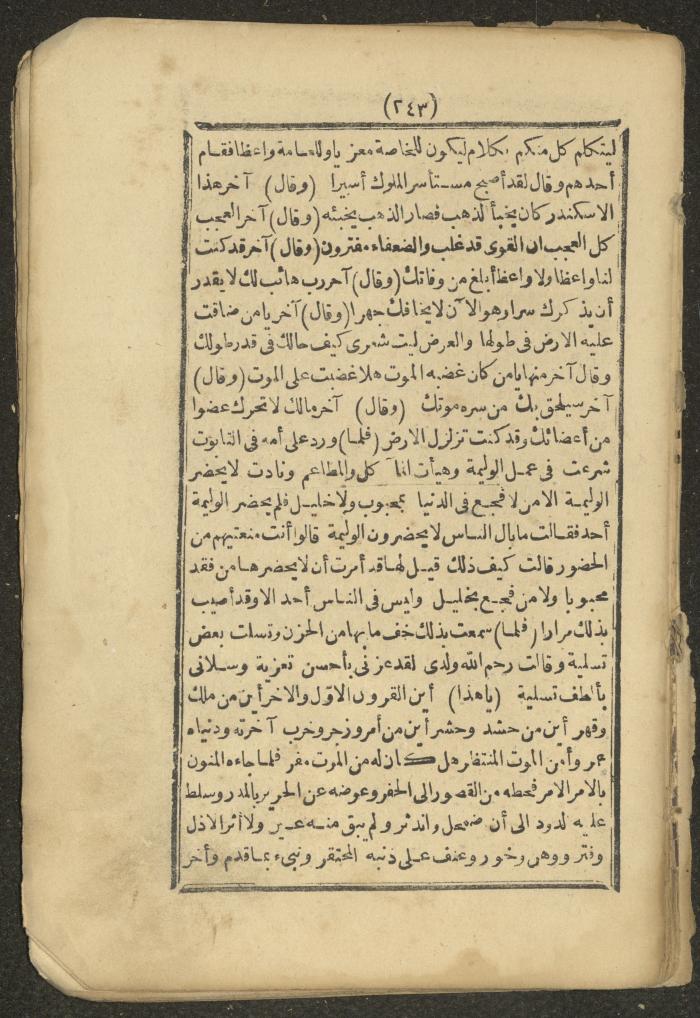 (٢٤٣)
ليتكلم كل منكم بكلام ليكون للخاصة معزيا وللعامة واعظا فقام
أحدهم وقال لقد أصبح مستأسر الملوك أسيرا (وقال) آخر هذا
الاسكندر كان يخبأ الذهب فصار الذهب يخبئه (وقال) آخر العجب
كل العجب ان القوى قد غلب والضعفاء مفترون (وقال) آخر قد كنت
لنا واعظا ولا واعظ أبلغ من وفاتك (وقال) آخر رب هائب لك لا يقدر
أن يذكرك سرا وهو الآن لا يخافك جهرا (وقال) آخر يا من ضاقت
عليه الارض فى طولها والعرض ليت شعرى كيف حالك فى قدر طولك
وقال آخر منها يا من كان غضبه الموت هلا غضبت على الموت (وقال)
آخر سيلحق بك من سره موتك (وقال) آخر مالك لا تحرك عضوا
من أعضائك وقد كنت تزلزل الارض (فلما) ورد على أمه فى التابوت
شرعت فى عمل الوليمة وهيأت المآكل والمطاعم ونادت لا يحضر
الوليمة الا من لا فجع فى الدنيا بمحبوب ولا خليل فلم يحضر الوليمة
أحد فقالت ما بال الناس لا يحضرون الوليمة قالوا أنت منعتيهم من
الحضور قالت كيف ذلك قيل لها قد أمرت أن لا يحضرها من فقد
محبوبا ولا من فجع بخليل وليس فى الناس أحد الا وقد أصيب
بذلك مرارا (فلما) سمعت بذلك خف ما بها من الحزن وتسلت بعض
تسلية وقالت رحم الله ولدى لقد عزنى بأحسن تعزية وسلانى
بألطف تسلية (يا هذا) أين القرون الاوّل والاخر أين من ملك
وقهر أين من حشد وحشر أين من أمر وزجر وخرب آخرته ودنياه
عمر وأمن الموت المنتظر هل كان له من الموت مفر فلما جاءه المنون
بالامر الامر فحطه من القصور الى الحفر وعوضه عن الحرير بالمدر وسلط
عليه الدود الى أن ضمحل واندثر ولم يبق منه عير ولا أثر الا ذل
وفتر ووهن وخور وعنف على ذنبه المحتقر ونبىء بما قدم وأخر